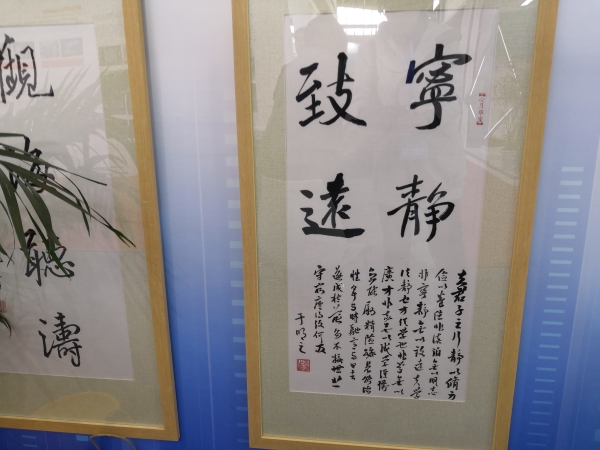 寧靜
致遠
夫君子之行靜以脩身
儉以養德非淡泊無以明志
非寧靜無以致遠夫學
須靜也才須學也非學無以
廣才非志無以成學慢
不能勵精險躁不能治
性年与時馳意与日去
成枯落多不接世悲
守窮廬將復何及
觀海聽濤